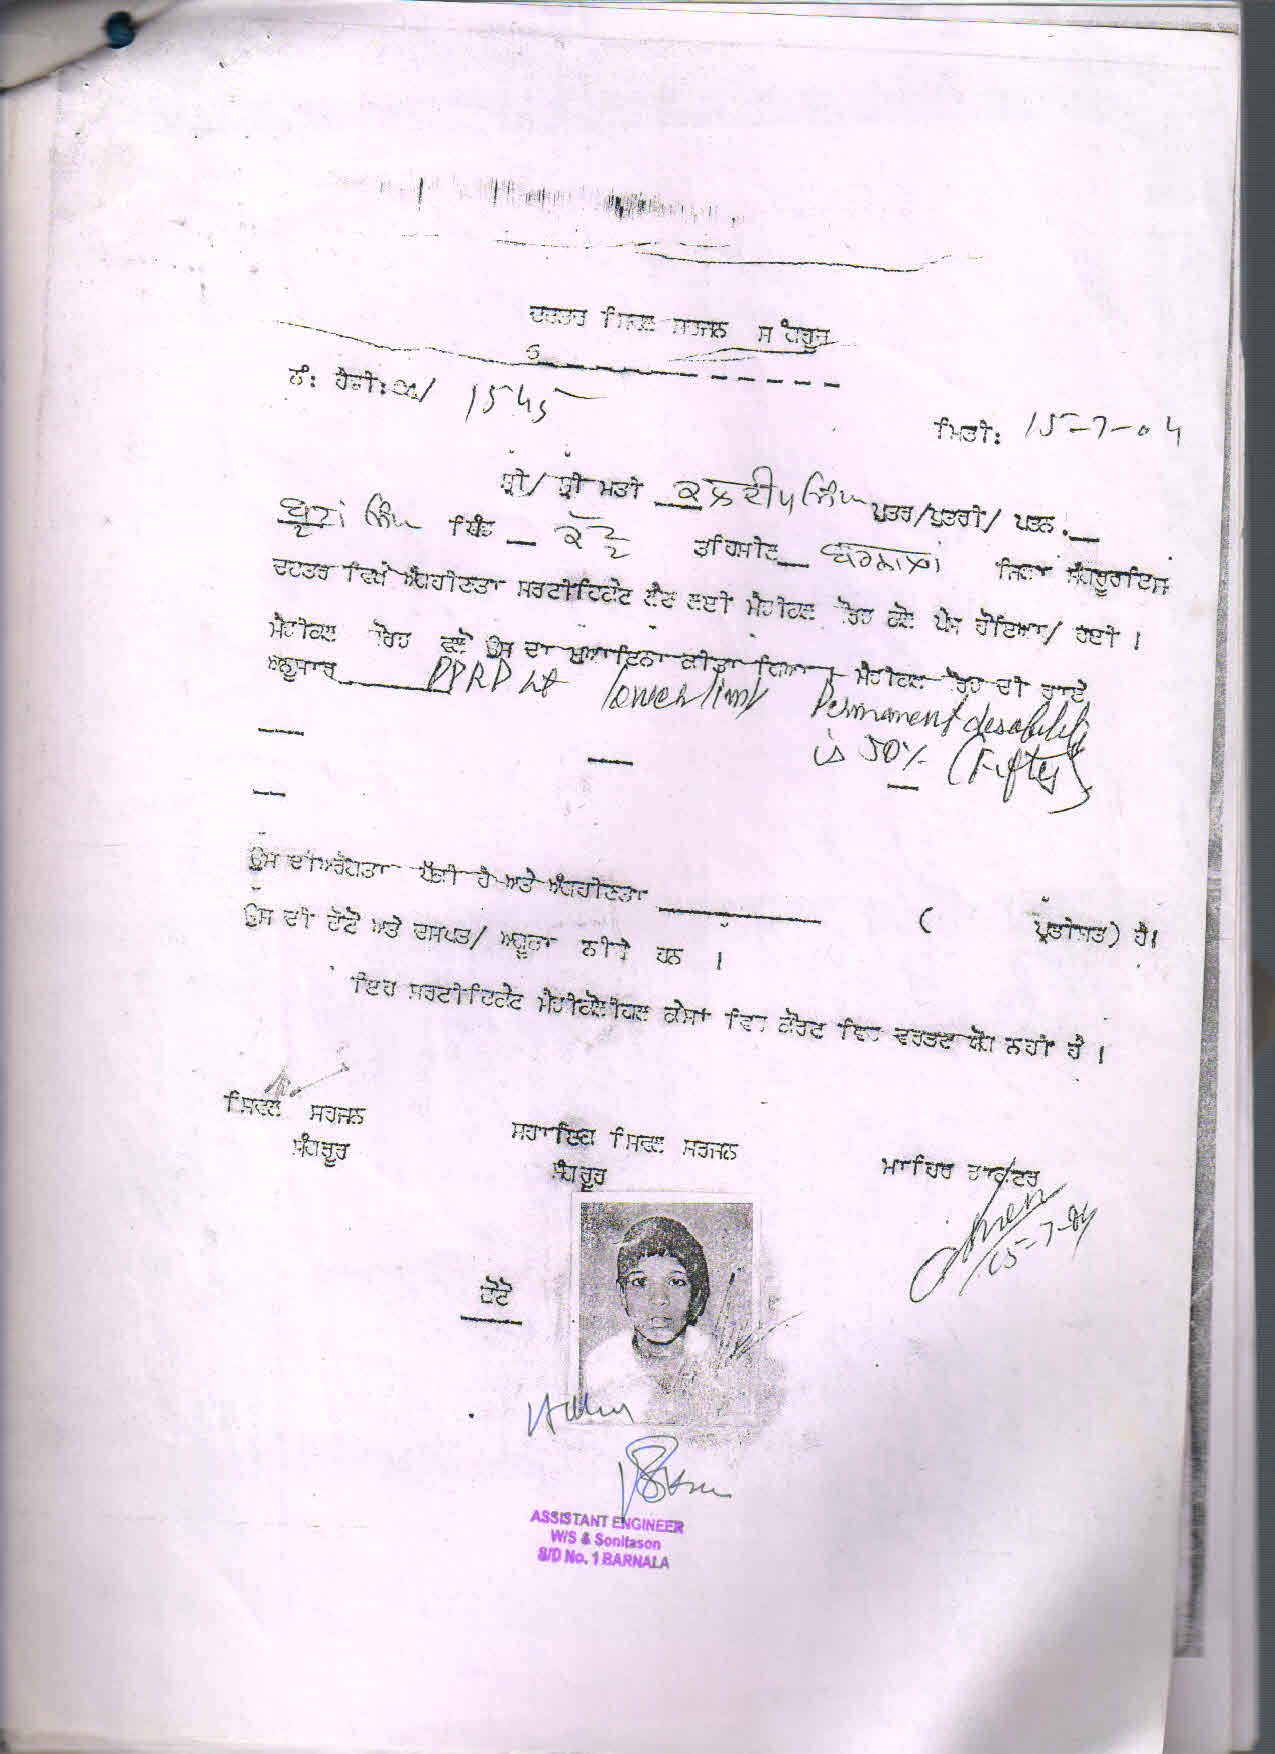 ਦਫਤਰ ਸਿਵਲ ਸਰਜਨ ਸੰਗਰੂਰ
ਨੰ: 1545
ਮਿਤੀ: 15-7-04
ਸ਼੍ਰੀ/ ਸ਼੍ਰੀ ਮਤੀ ਕੁਲਦੀਪ ਸਿੰਘ ਪੁਤਰ/ਪੁਤਰੀ/ ਪਤਨੀ
ਬੂਟਾ ਸਿੰਘ ਪਿੰਡ ਤਹਿਸੀਲ ਬਰਨਾਲਾ ਜਿਲਾ ਸੰਗਰੂਰ ਇਸ
ਦਫਤਰ ਵਿਖੇ ਅੰਗਹੀਣਤਾ ਸਰਟੀਫਿਕੇਟ ਲੈਣ ਲਈ ਮੈਡੀਕਲ ਬੋਰਡ ਕੋਲ ਪੇਸ਼ ਹੋਇਆ/ ਹੋਈ ।
ਮੈਡੀਕਲ ਬੋਰਡ ਵਲੋਂ ਉਸ ਦਾ ਮੁਆਇਨਾ ਕੀਤਾ ਗਿਆ । ਮੈਡੀਕਲ ਬੋਰਡ ਦੀ ਰਾਏ
ਅਨੁਸਾਰ PPRP lower limb Permanent desability
is 50% (Fifty)
ਉਸ ਦੀ ਹੈ ਅਤੇ ਅੰਗਹੀਣਤਾ ( ਪ੍ਰਤੀਸ਼ਤ) ਹੈ।
ਉਸ ਦੀ ਫੋਟੋ ਅਤੇ ਦਸਖਤ/ ਅੰਗੂਠਾ ਹਨ ।
ਇਹ ਸਰਟੀਫਿਕੇਟ ਮੈਡੀਕੋਲੀਗਲ ਕੇਸਾਂ ਵਿਚ ਕੋਰਟ ਵਿਚ ਵਰਤਣ ਯੋਗ ਨਹੀਂ ਹੈ ।
ਸਿਵਲ ਸਰਜਨ
ਸੰਗਰੂਰ
ਸਹਾਇਕ ਸਿਵਲ ਸਰਜਨ
ਸੰਗਰੂਰ
ਮਾਹਿਰ ਡਾਕਟਰ
15-7-04
ਫੋਟੋ
ASSISTANT ENGINEER
W/S & Sonitason
S/D No. 1 BARNALA